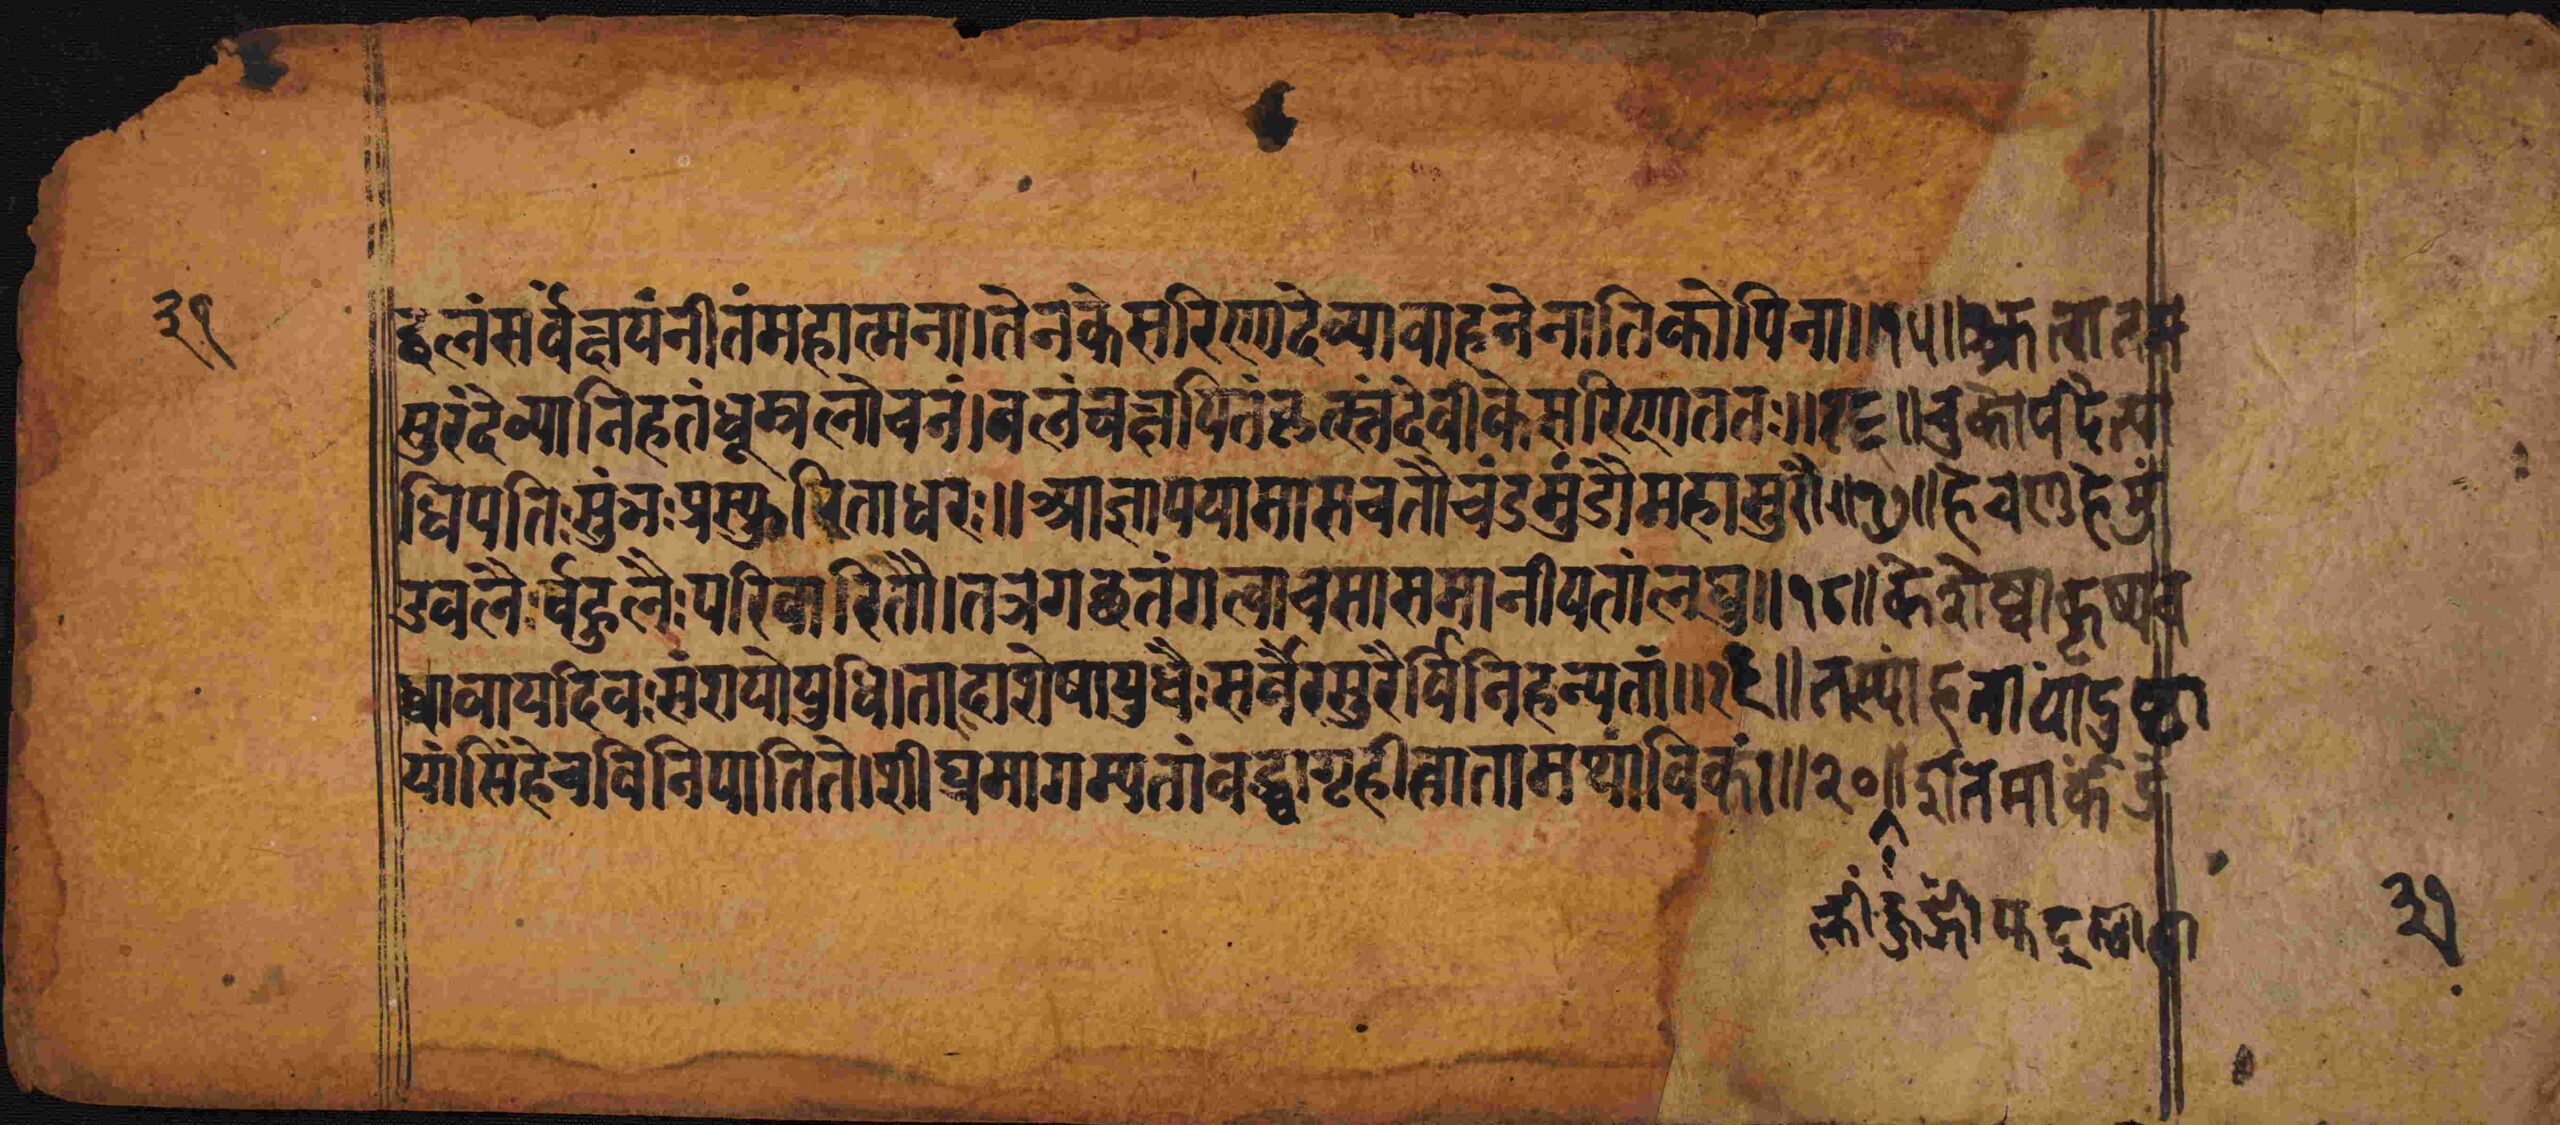 ३१
द्बलंसर्वंक्षयंनीतंमहात्मना।तेनकेसरिणादेव्यावाहनेनातिकोपिना॥१५॥श्रुत्वातम
सुरंदेव्यानिहतंधूम्रलोचनं।बलंचक्षयितंकृत्स्नंदेवीकेसरिणाततः॥१६॥चुकोपदैत्या
धिपतिःसुंभःप्रस्फुरिताधरः॥आज्ञापयामासचतौचंडमुंडौमहासुरौ॥१७॥हेचण्डहेमुं
डबलैःर्बहुलैःपरिवारितौ।तत्रगच्छतंगत्वाचसासमानीयतांलघु॥१८॥केशेष्वाकृष्यब
ध्वावायदिवःसंशयोयुधि।तदाशेषायुधैःसर्वैरसुरैर्विनिहन्यतां॥१९॥तस्यांहतायांदुष्टा
यांसिंहेचविनिपातिते।शीघ्रमागम्यतांबद्ध्वागृहीत्वातामथांबिकां॥२०॥इतिमार्कंडे
३१